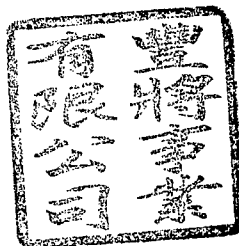 豐將事業
有限公司